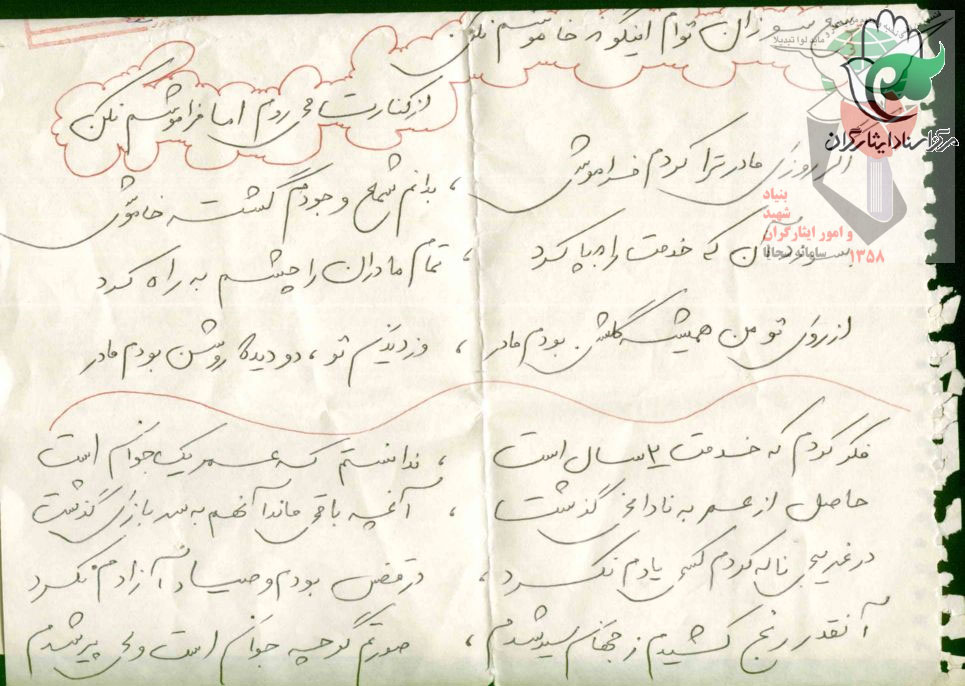 سوزان توام اینگونه خاموشم نکن
از کنارت می روم اما فراموشم نکن
اگر روزی مادر ترا کردم فراموشی ، بدانم شمع وجودم گشته خاموشی
آن که خدمت را به پا کرد ، تمام مادران را چشم به راه کرد
از روی تو من همیشه گلشن بودم مادر ، وز دیدنم تو ، دو دیده روشن بودم مادر
فکر کردم که خدمت ۲ سال است ، ندانستم که عمر یک جوانم است
حاصل از عمر به نادانی گذشت ، آنچه باقی ماند آنهم به سر بازی گذشت
در غریبی ناله کردم کسی یادم نکرد ، در قفس بودم و صیاد آزادم نکرد
آنقدر رنج کشیدم ز جهانم سیر شدم ، صورتم گرچه جوانم است ولی پیر شدم
مرکز اسناد ایثارگران
بنیاد
شهید
و امور ایثارگران
سامانه سجایا
۱۳۵۸